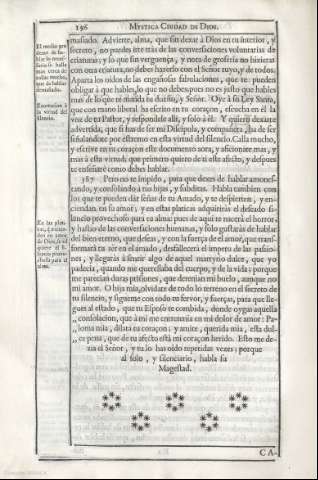 156 MYSTICA CIUDAD DE DIOS.
masiado. Advierte, alma, que sin dexar à Dios en tu interior, y
secreto, no puedes irte tràs de las conversaciones voluntarias de
criaturas; y lo que sin verguença, y nota de groseria no hizieras
con otra criatura, no debes hazerlo con el Señor tuyo, y de todos.
Aparta los oidos de las engañosas fabulaciones, que te pueden
obligar à que hables, lo que no debes, pues no es justo que hables
mas de lo que te manda tu dueño, y Señor. Oye à su Ley Santa,
que con mano liberal ha escrito en tu coraçon, escucha en èl la
voz de tu Pastor, y respondele alli, y solo à èl. Y quiero dexarte
advertida, que si has de ser mi Discipula, y compañera, ha de ser
señalandote por estremo en esta virtud del silencio. Calla mucho,
y escrive en tu coraçon este documento aora, y aficionate mas, y
mas à esta virtud; que primero quiero de ti este afecto, y despues
te enseñarè como debes hablar.
El medio pru
dente de ha-
blar lo neces-
sario se halla
mas cerca de
callar mucho,
que de hablar
demasiado.
Exortacion à
la virtud del
silencio.
387 Pero no te impido, para que dexes de hablar amones-
tando, y consolando à tus hijas, y subditas. Habla tambien con
los que te pueden dàr señas de tu Amado, y te despierten, y en-
ciendan en su amor; y en estas platicas adquiriràs el deseado si-
lencio provechoso para tu alma; pues de aqui te nacerà el horror,
y hastio de las conversaciones humanas, y solo gustaràs de hablar
del bien eterno, que deseas, y con la fuerça de el amor, que trans-
formarà tu sèr en el amado, desfallecerà el impetu de las passio-
nes, y llegaràs à sentir algo de aquel martyrio dulce, que yo
padecia, quando me querellaba del cuerpo, y de la vida; porque
me parecian duras prisiones, que detenian mi buelo, aunque no
mi amor. O hija mia, olvidate de todo lo terreno en el secreto de
tu silencio, y sigueme con todo tu fervor, y fuerças, para que lle-
gues al estado, que tu Esposo te combida, donde oygas aquella
,, consolacion, que à mi me entretenia en mi dolor de amor: Pa-
,, loma mia, dilata tu coraçon; y amite, querida mia, esta dul-
,, ce pena, que de tu afecto està mi coraçon herido. Esto me de-
zia el Señor, y tu lo has oido repetidas vezes; porque
al solo, y silenciario, habla su
Magestad.
CA-